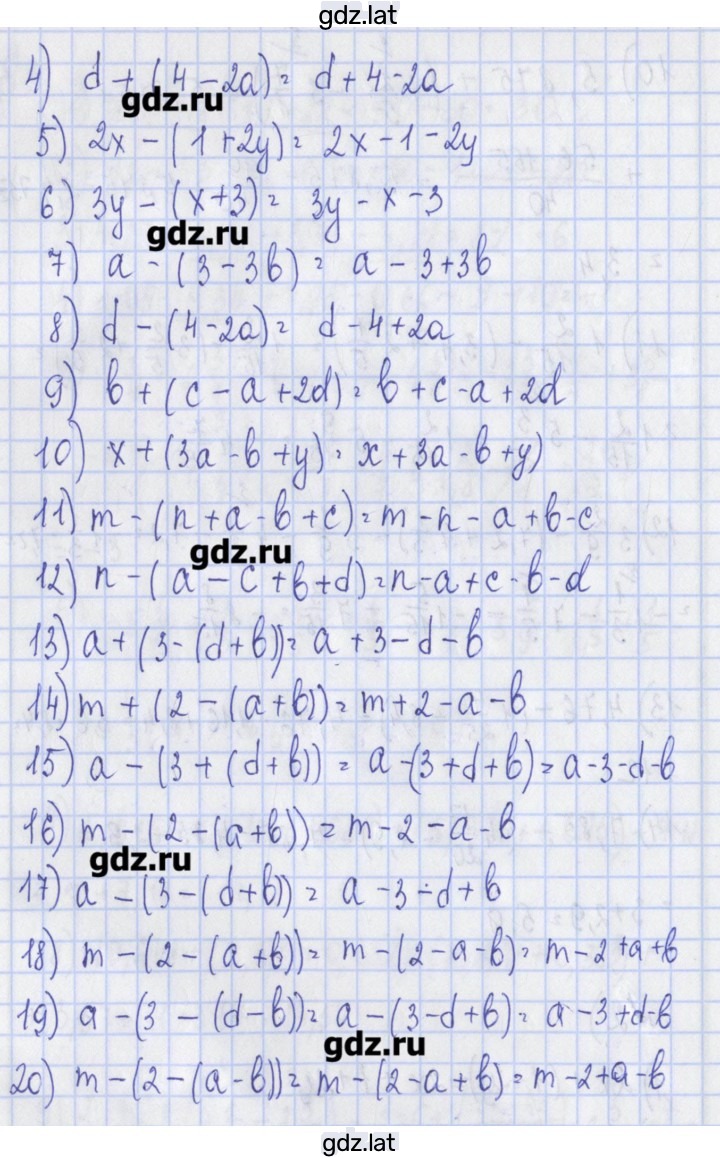 gdz.lat
4) d + (4 - 2a) = d + 4 - 2a
gdz.ru
5) 2x - (1 + 2y) = 2x - 1 - 2y
6) 3y - (x + 3) = 3y - x - 3
gdz.ru
7) a - (3 - 3b) = a - 3 + 3b
8) d - (4 - 2a) = d - 4 + 2a
9) b + (c - a + 2d) = b + c - a + 2d
10) x + (3a - b + y) = x + 3a - b + y)
11) m - (n + a - b + c) = m - n - a + b - c
gdz.ru
12) n - (a - c + b + d) = n - a + c - b - d
13) a + (3 - (d + b)) = a + 3 - d - b
14) m + (2 - (a + b)) = m + 2 - a - b
15) a - (3 + (d + b)) = a - (3 + d + b) = a - 3 - d - b
16) m - (2 - (a + b)) = m - 2 - a - b
gdz.ru
17) a - (3 - (d + b)) = a - 3 - d + b
18) m - (2 - (a + b)) = m - (2 - a - b) = m - 2 + a + b
19) a - (3 - (d - b)) = a - (3 - d + b) = a - 3 + d - b
gdz.ru
20) m - (2 - (a - b)) = m - (2 - a + b) = m - 2 + a - b
gdz.lat